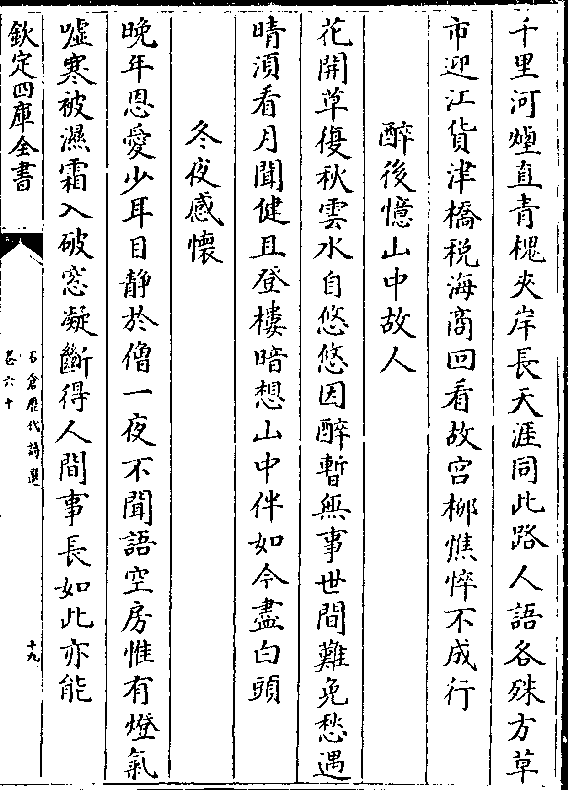 千里河煙直青槐夾岸長天涯同此路人語各殊方草
市迎江貨津橋稅海商回看故宮柳憔悴不成行
醉後憶山中故人
花開草復秋雲水自悠悠因醉暫無事世間難免愁遇
晴須看月聞健且登樓暗想山中伴如今盡白頭
冬夜感懷
晚年恩愛少耳目靜於僧一夜不聞語空房惟有燈氣
噓寒被濕霜入破窓凝斷得人間事長如此亦能
欽定四庫全書
石倉歷代詩選
卷六十
十九